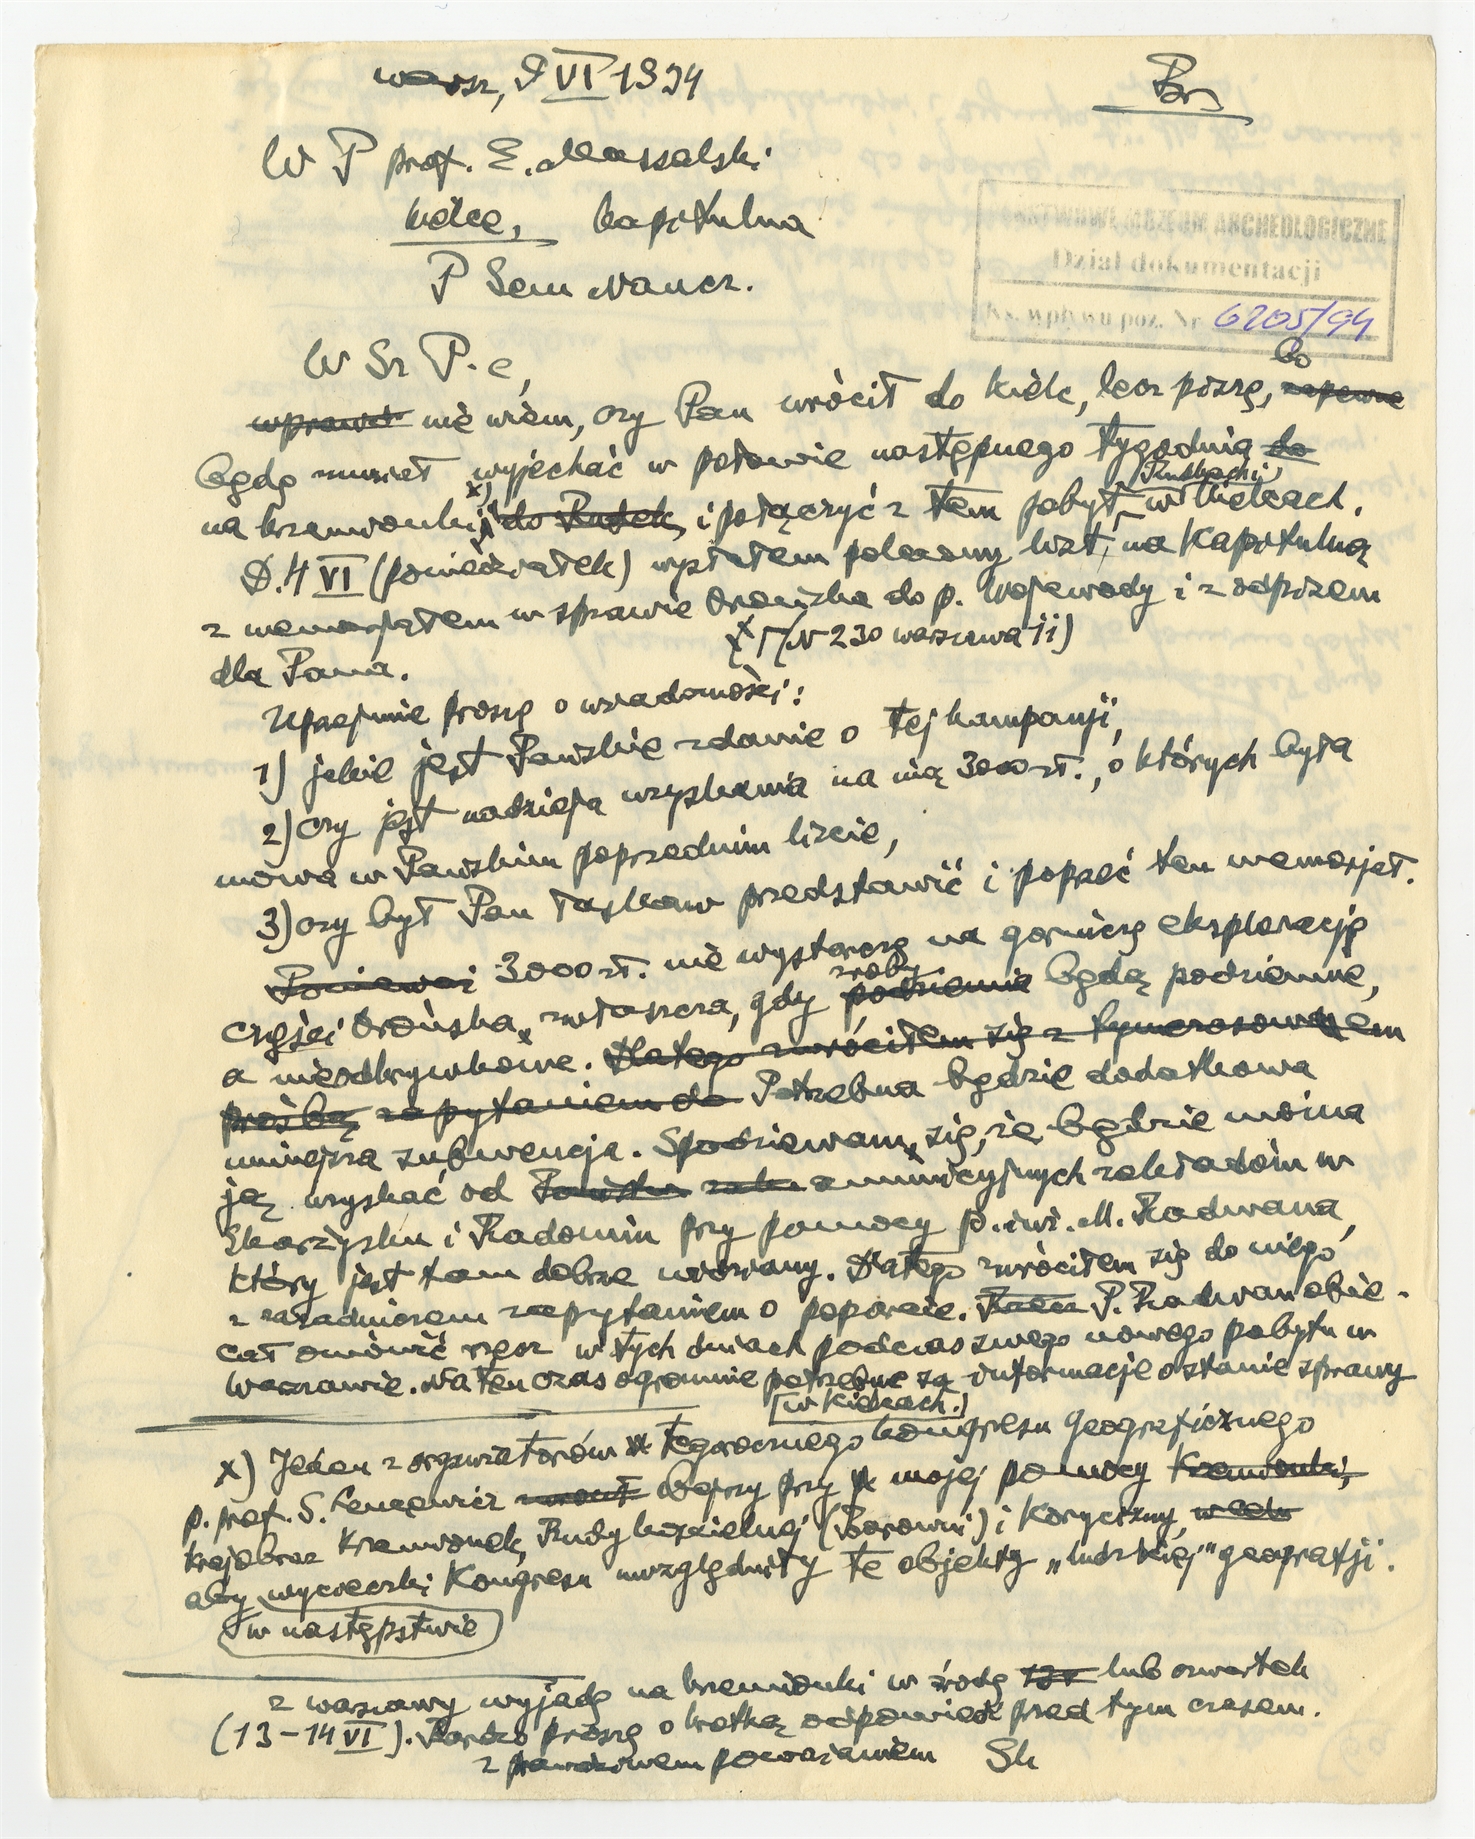 Warsz, 9 VI 1934
Br
W P prof. E. Massalski
Kielce, Kapitulna
P Sem Naucz.
PAŃSTWOWE MUZEUM ARCHEOLOGICZNE
Dział dokumentacji
Ks. wpływu poz. Nr 6205/94
W Sz P. e,
bo
wprawdz nie wiem, czy Pan wrócił do Kielc, lecz piszę, zapewne
będę musiał wyjechać w połowie następnego tygodnia do
na krzemionki x) do Rudek, i połączyć z tem pobyt w Kielcach.
D. 4 VI (poniedziałek) wysłałem polecony list na Kapitulną
z memorjałem w sprawie Orońska do p. Wojewody i z odpisem
x (N 230 Warszawa 1i)
dla Pana.
Uprzejmie proszę o wiadomości:
1) jakie jest Pańskie zdanie o tej kampanji,
2) czy jest nadzieja uzyskania na nią 3000 zł., o których była
mowa w Pańskim poprzednim liście,
3) czy był Pan łaskaw przedstawić i poprzeć ten memorjał.
Ponieważ 3000 zł. nie wystarczą na górniczą eksplorację
części Orońska, zwłaszcza, gdy podziemnie będą podziemne,
zroby
a nieodkrywkowe. Dlatego zwróciłem się z tymczasowem
prośbą zapytaniem do Potrzebna będzie dodatkowa
mniejsza subwencja. Spodziewam się, że będzie można
ją uzyskać od amunicyjnych zakładów w
Skarżysku i Radomiu przy pomocy p. inż. M. Radwana,
który jest tam dobrze widziany. Dlatego zwróciłem się do niego
z zasadniczem zapytaniem o poparcie. P. Radwan obie-
cał omówić rzecz w tych dniach podczas swego nowego pobytu w
Warszawie. Na ten czas ogromnie potrzebne są informacje o stanie sprawy
(w Kielcach.)
x) Jeden z organizatorów tegorocznego kongresu geograficznego
p. prof. S. Lencewicz obejrzy przy mojej pomocy Krzemionki,
krajobraz Krzemionek, Rudy kościelnej (Borowni) i Korycizny,
aby wycieczki Kongresu uwzględniły te objekty „ludzkiej" geografji.
w następstwie
Z Warszawy wyjadę na krzemionki w środę lub czwartek
(13–14 VI). Bardzo proszę o krótką odpowiedź przed tym czasem.
z prawdziwem poważaniem Sk